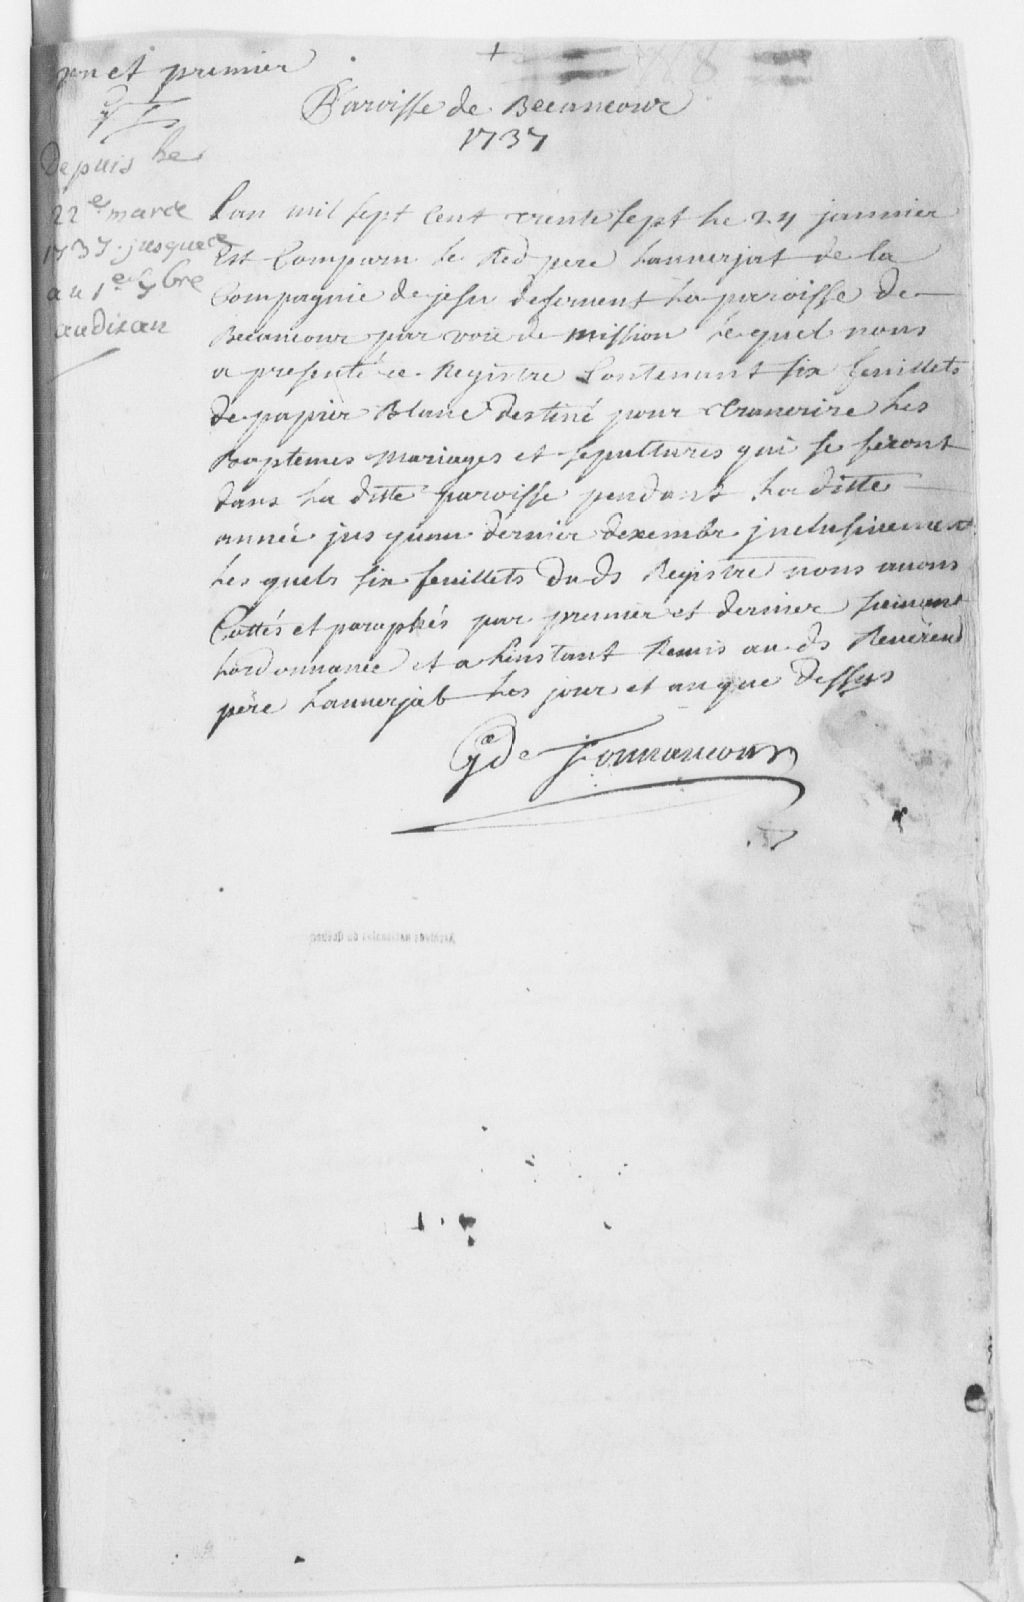 un et premier
Paroisse de Becancour
1737
Depuis le
22e marce
1737. jusque
au 1er 7bre
audit an
Lan mil sept Cent trente sept le 24 januier
Est Comparu le Red pere Lauuerjat de la
Compagnie de jesu deseruent La paroisse de
Becancour par voie de mission Lequel nous
a presenté ce Registre Contenant six feuillets
de papier Blanc destiné pour transcrire Les
Baptemes Mariages et sepultures qui se feront
dans La ditte paroisse pendant La ditte
année jus quau dernier dexembr jnclusiuement
Les quels six feuillets Du ds Registre nous auons
Cottés et paraphés par premier et dernier suiuant
Lordonnance et a Linstant Remis au ds Reuerend
père Lauuerjat Les jour et an que Dessus
g de Tonnancour
Archives nationales du Québec